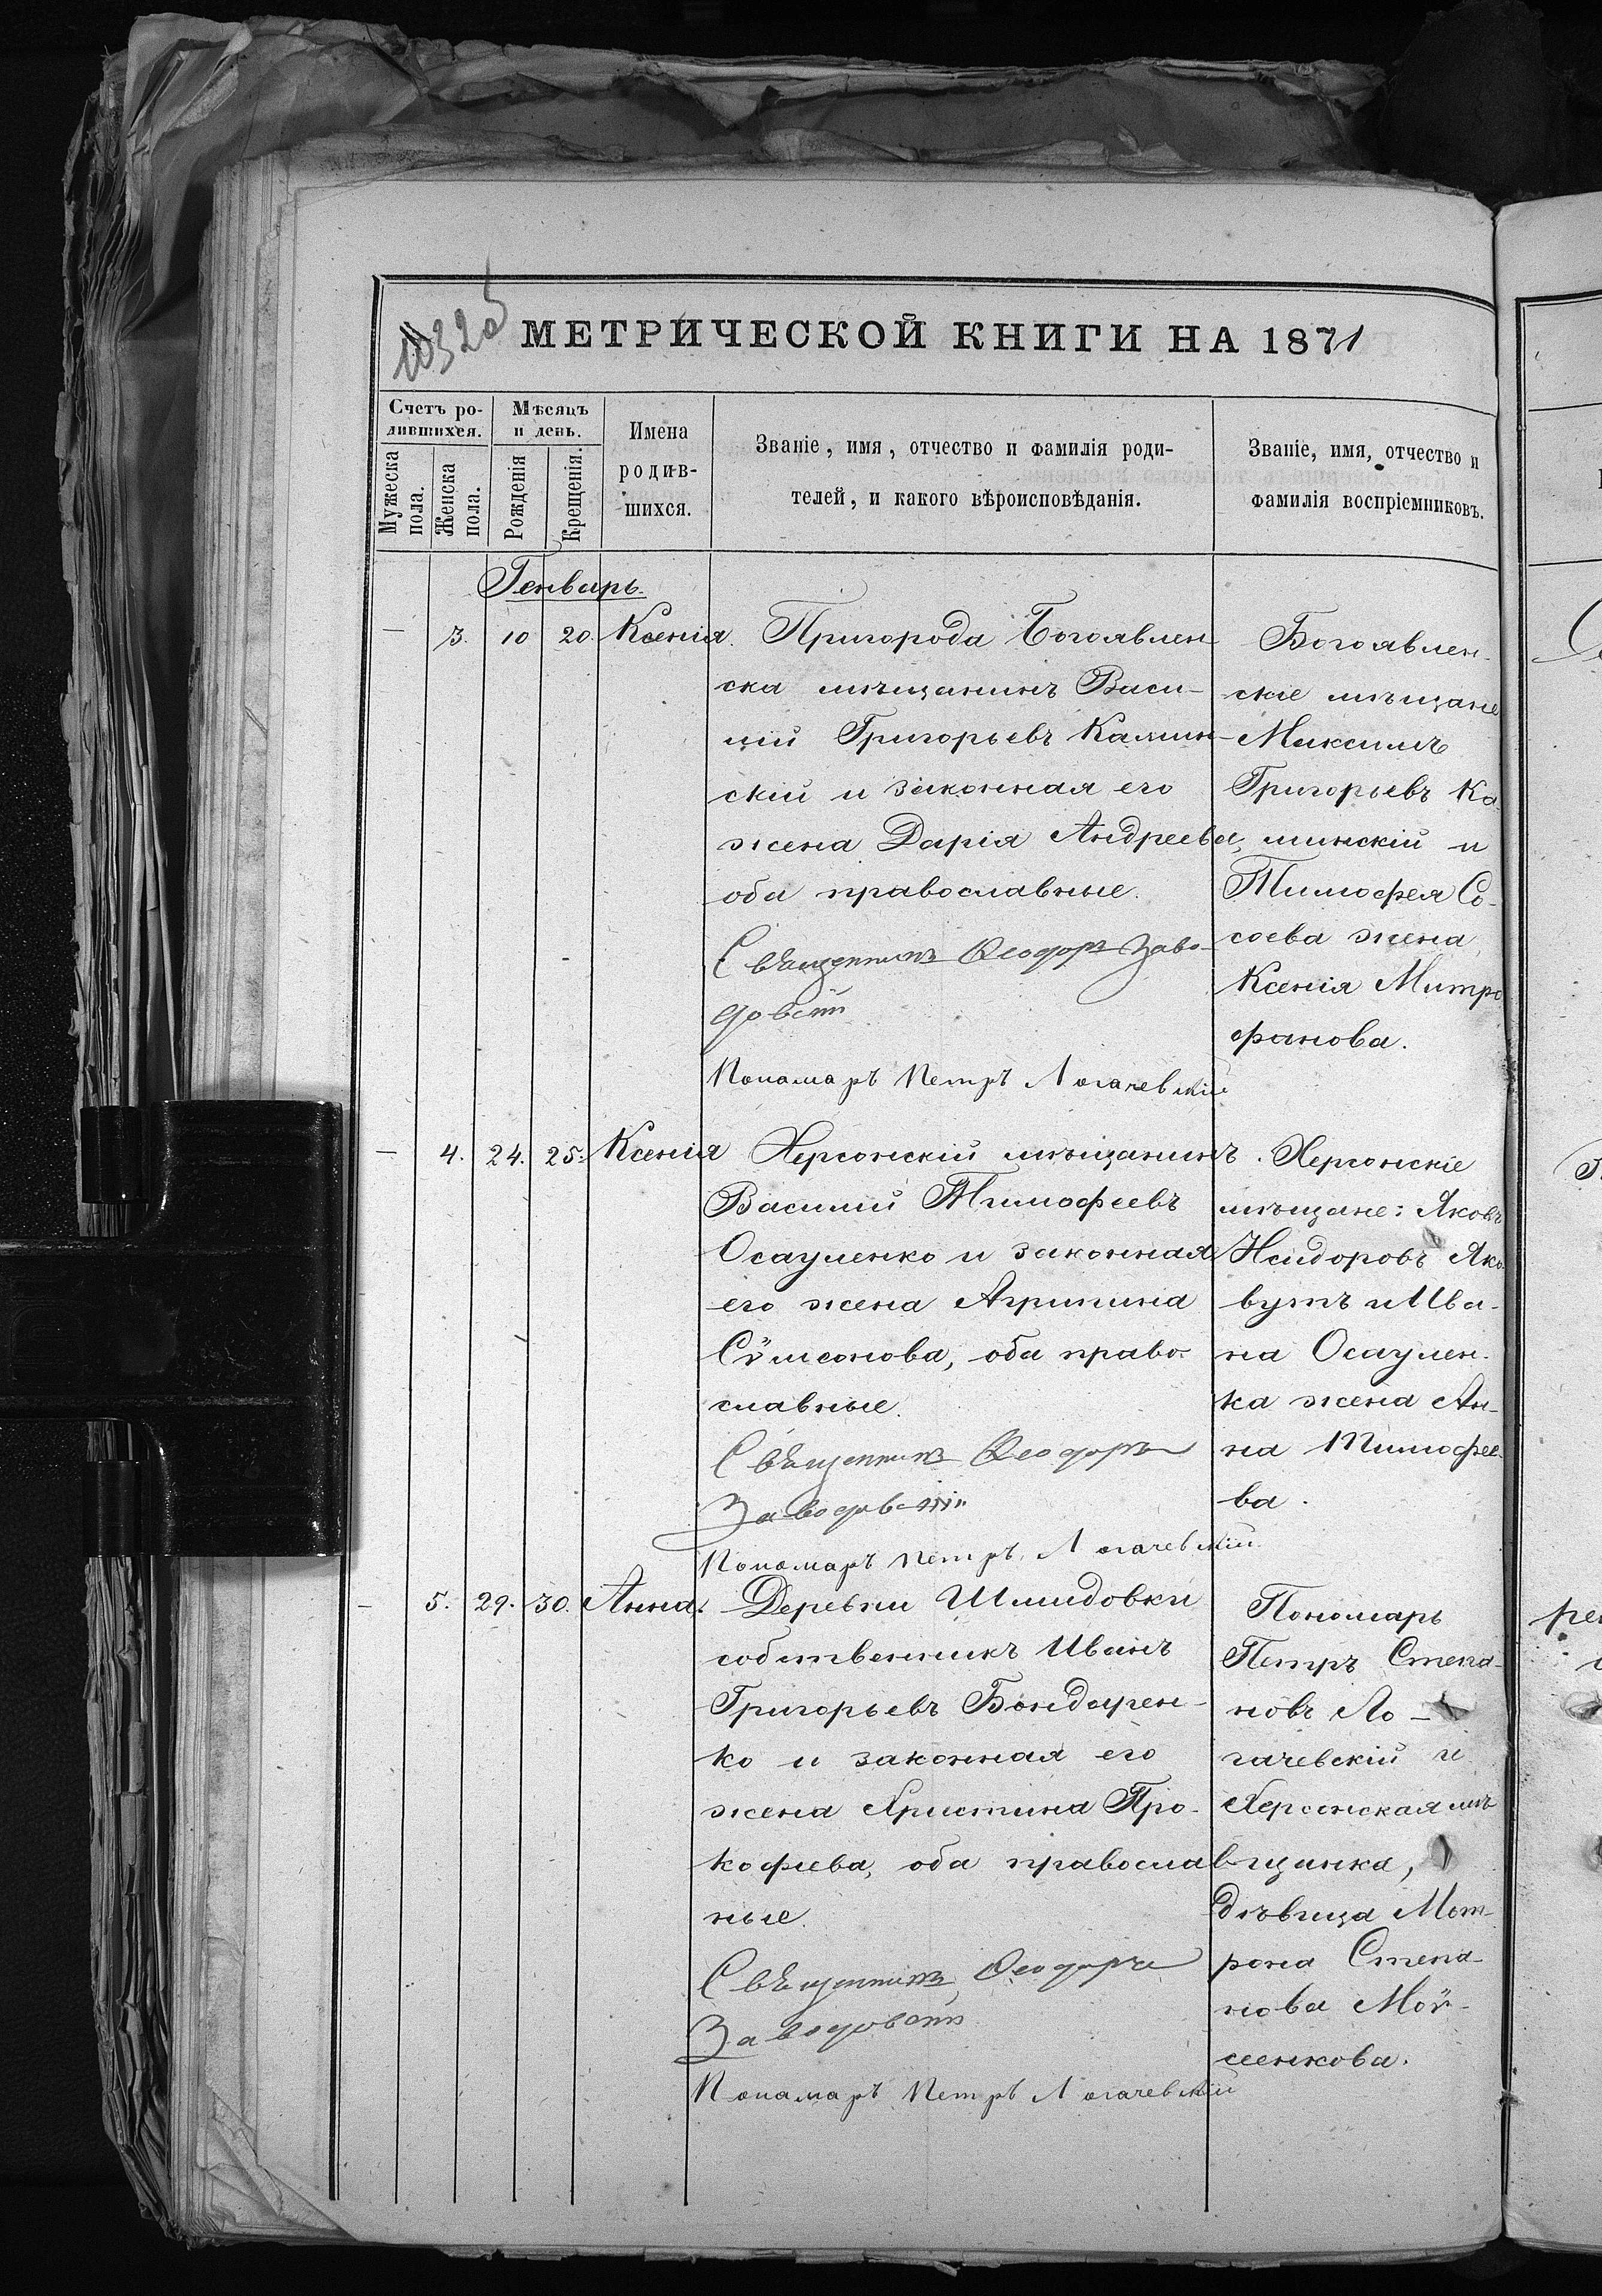 1032об
МЕТРИЧЕСКОЙ КНИГИ НА 1871
Счетъ ро-
дившихся.
Мужеска
пола.
Женска
пола.
Мѣсяцъ
и день.
Рожденія
Крещенія.
Имена
родив-
шихся.
Званіе, имя, отчество и фамилія роди-
телей, и какого вѣроисповѣданія.
Званіе, имя, отчество и
фамилія воспріемниковъ.
Генварь.
— 3. 10 20. Ксенія.
Пригорода Богоявлен
ска мѣщанинъ Васи-
лій Григорьевъ Камин-
скій и законная его
жена Дарія Андреева,
оба православные.
Священникъ Ѳеодоръ Заво-
довскій
Пономаръ Петръ Логачевскій
Богоявлен-
скіе мѣщане
Максимъ
Григорьевъ Ка-
минскій и
Тимофея Со-
соева жена
Ксенія Митро
фанова.
— 4. 24. 25. Ксенія
Херсонскій мѣщанинъ
Василій Тимофеевъ
Осауленко и законная
его жена Агрипина
Сѵмсонова, оба право-
славные.
Священникъ Ѳеодоръ
Заводовскій
Пономаръ Петръ Логачевскій
Херсонскіе
мѣщане: Яковъ
Исидоровъ Яко-
вутъ и Ива-
на Осаулен-
ка жена Ан-
на Тимофее-
ва.
— 5. 29. 30. Анна.
Деревни Шмидовки
собственникъ Иванъ
Григорьевъ Бондарен-
ко и законная его
жена Христина Про-
кофиева, оба православ-
ные.
Священникъ Ѳеодоръ
Заводовскій
Пономаръ Петръ Логачевскій
Пономарь
Петръ Степа-
новъ Ло-
гачевскій и
Херсонская мѣ
щанка,
дѣвица Мот-
рона Степа-
нова Моѵ-
сеенкова.